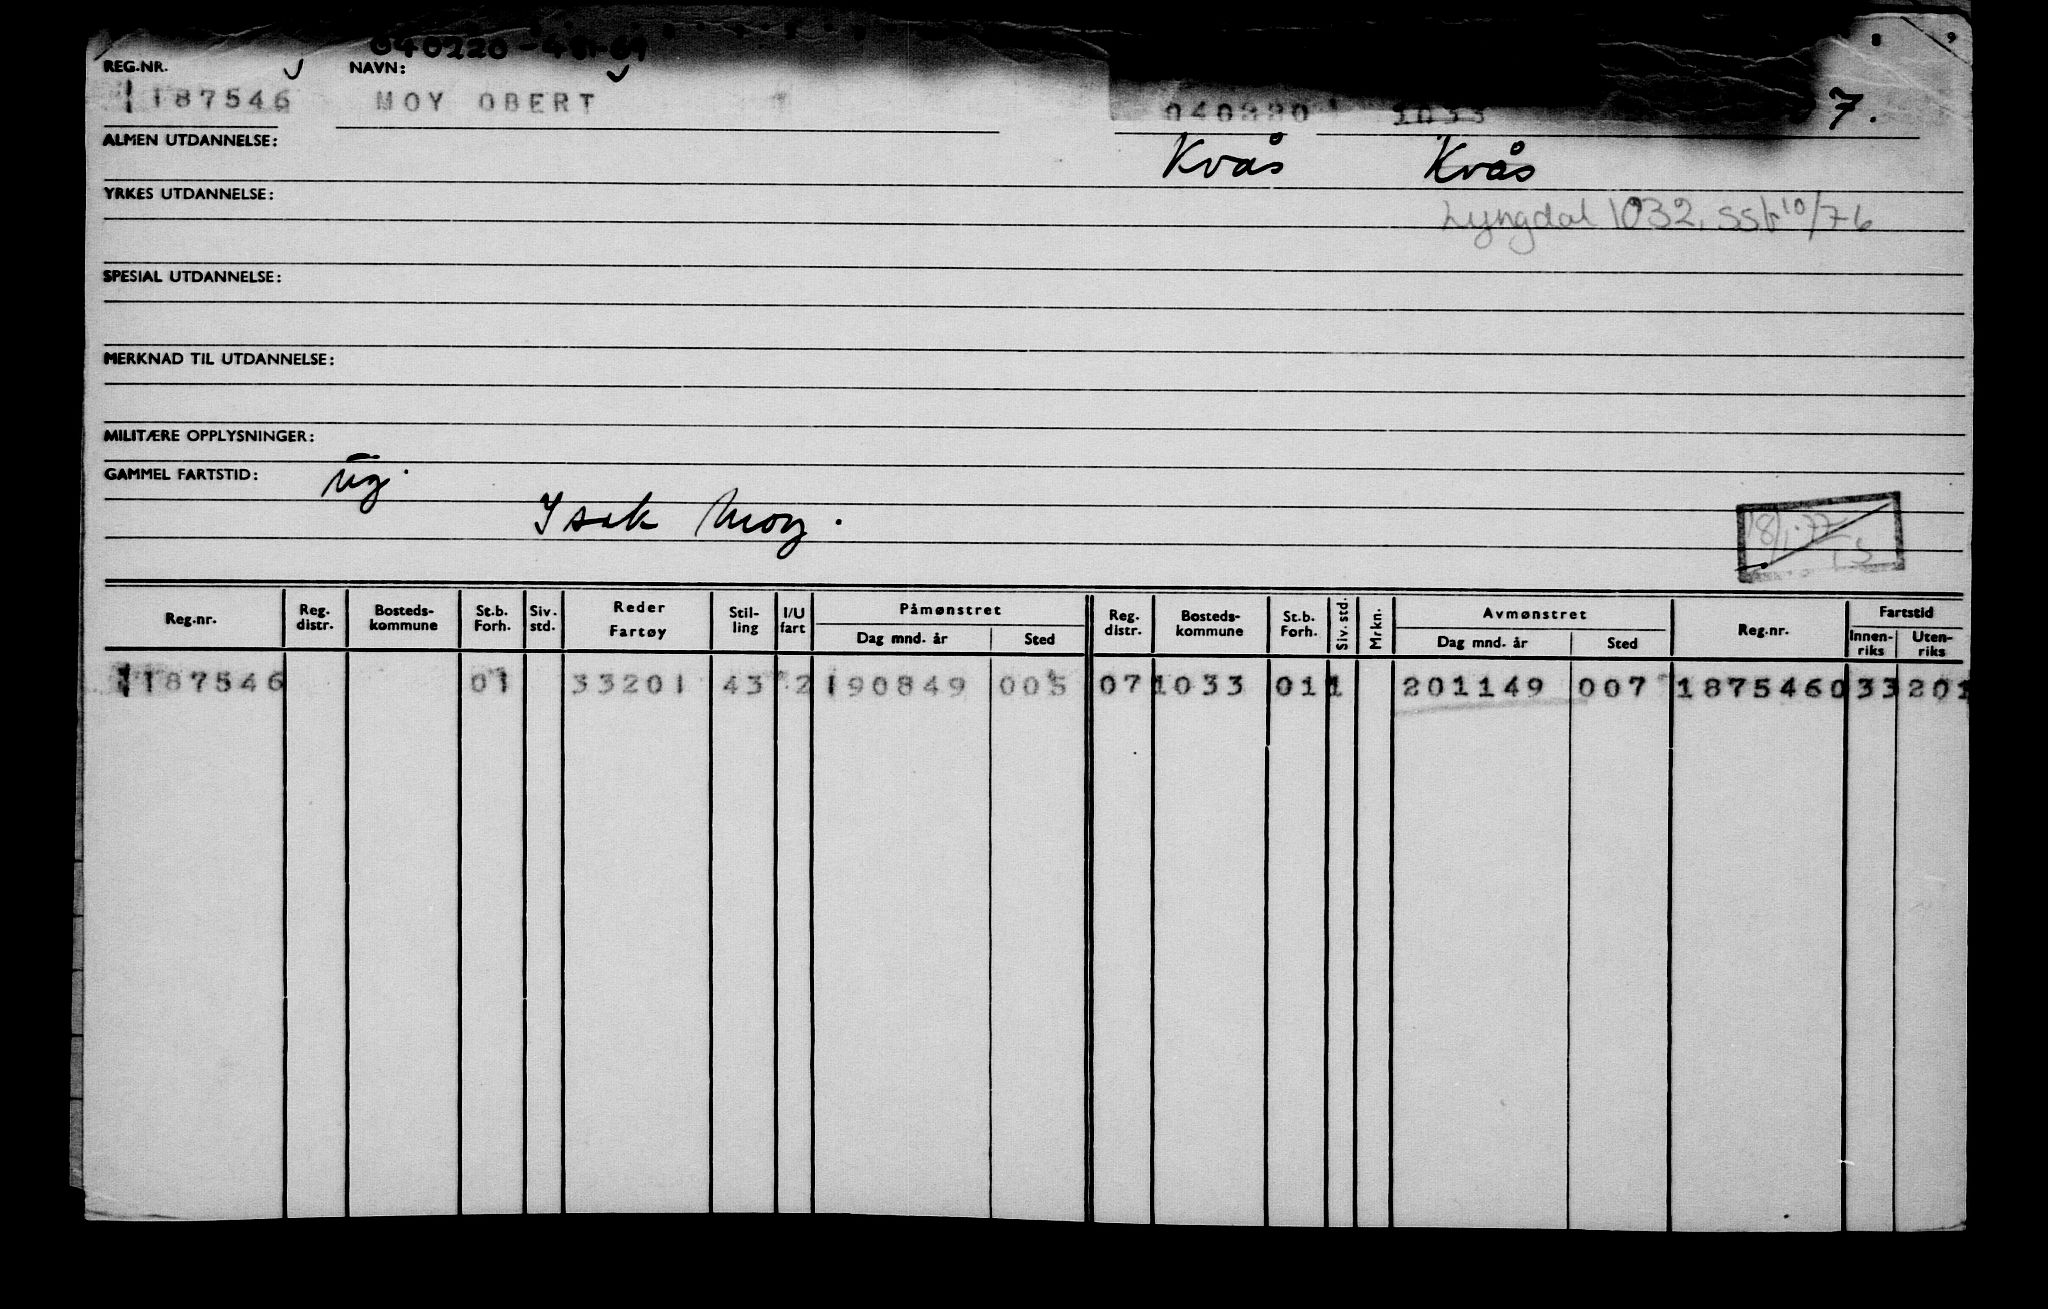 040220-
8 9
REG.NR. NAVN:
1187546 MOY OBERT 040220 1033 7.
ALMEN UTDANNELSE: Kvås Kvås
YRKES UTDANNELSE:
Lyngdal 1032, ssb 10/76
SPESIAL UTDANNELSE:
MERKNAD TIL UTDANNELSE:
MILITÆRE OPPLYSNINGER:
GAMMEL FARTSTID: ug.
Isak Moy.
18/1-77
TS
Reg.nr. Reg. distr. Bosteds- kommune St.b. Forh. Siv. std. Reder Fartøy Stil- ling I/U fart Påmønstret Dag mnd. år Sted Reg. distr. Bosteds- kommune St.b. Forh. Siv. std. Mrkn. Avmønstret Dag mnd. år Sted Reg.nr. Fartstid Innen- riks Uten- riks
1187546 01 33201 43 2 190849 005 07 1033 01 1 201149 007 1875460 33 201